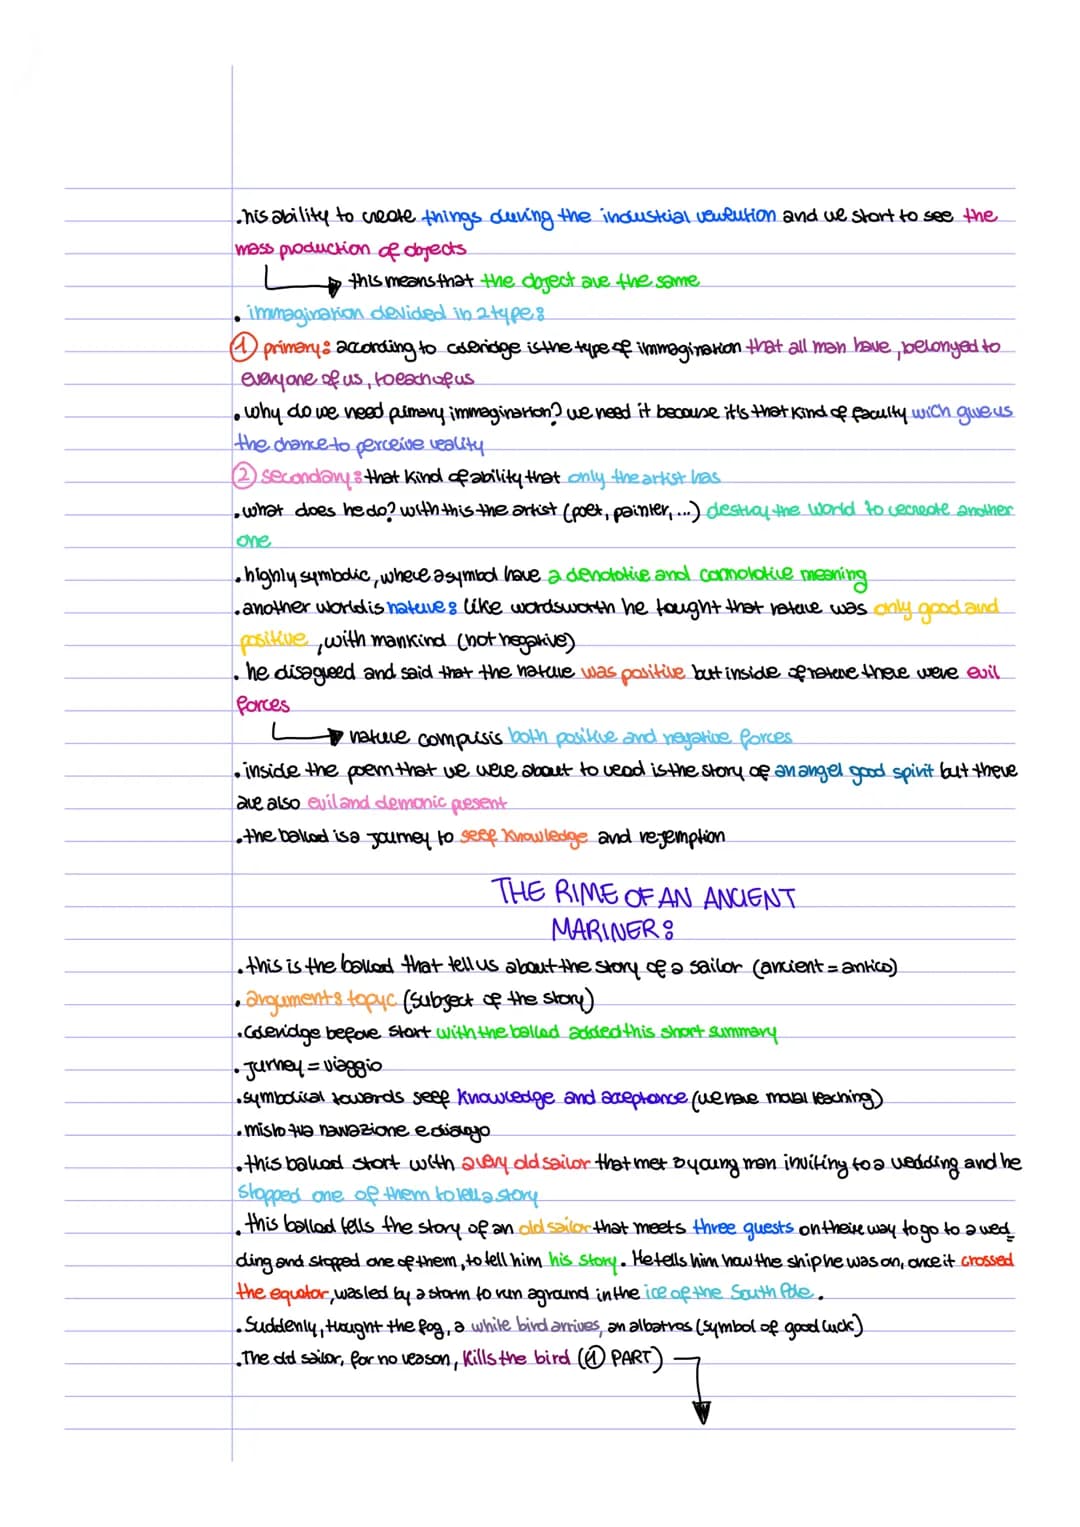 .his ability to create things during the industrial revolution and we start to see the
mass production of objects
this means that the object are the same
. immagination devided in 2 type:
1 primary: according to coleridge is the type of immagination that all man have, belonged to
everyone of us, to each of us
. why do we need primary immagination? we need it because it's that kind of faculty wich give us
the chance to perceive reality
2 secondary: that kind of ability that only the artist has
. what does he do? with this the artist (poet, painter, ...) destroy the world to recreate another
one
. highly symbolic, where a symbol have a denotative and connotative meaning
. another world is nature: like wordsworth he tought that nature was only good and
positive, with mankind (not negative)
. he disagreed and said that the nature was positive but inside of nature there were evil
forces
nature comprisis both positive and negative forces
. inside the poem that we were about to read is the story of an angel good spirit but there
are also evil and demonic present
. the ballad is a journey to self knowledge and rejemption
THE RIME OF AN ANCIENT
MARINER:
. this is the ballad that tell us about the story of a sailor (ancient = antico)
. argument: topyc (subject of the story)
. Coleridge before start with the ballad added this short summary
. Jurney = viaggio
. symbolical towards self knowledge and aceptance (we have moral teaching)
. misto tra narrazione e dialogo
. this ballad start with a very old sailor that met 3 young man inviting to a wedding and he
stopped one of them to tell a story
. this ballad tells the story of an old sailor that meets three guests on their way to go to a wed
ding and stopped one of them, to tell him his story. He tells him how the ship he was on, once it crossed
the equator, was led by a storm to run aground in the ice of the South Pole.
. Suddenly, thought the fog, a white bird arrives, an albatros (symbol of good luck)
. The old sailor, for no reason, kills the bird (1 PART)